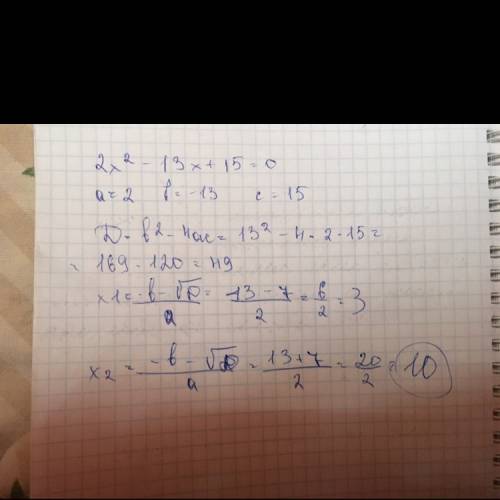 2x² - 13x + 15 = 0
a = 2 b = -13 c = 15
D = b² - 4ac = 13² - 4 · 2 · 15 =
= 169 - 120 = 49
x1 = (-b - √D)/a = (13 - 7)/2 = 6/2 = 3
x2 = (-b - √D)/a = (13 + 7)/2 = 20/2 = 10